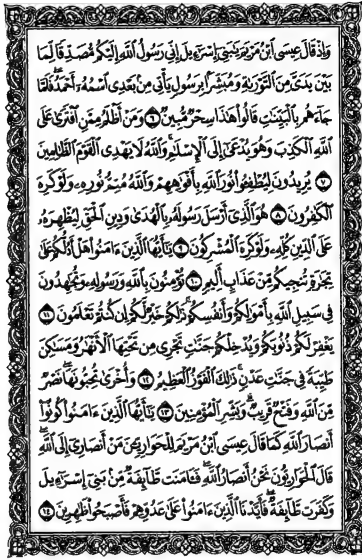 وَإِذْ قَالَ عِيسَى ٱبْنُ مَرْيَمَ يَٰبَنِىٓ إِسْرَٰٓءِيلَ إِنِّى رَسُولُ ٱللَّهِ إِلَيْكُم مُّصَدِّقًا لِّمَا
بَيْنَ يَدَىَّ مِنَ ٱلتَّوْرَىٰةِ وَمُبَشِّرًۢا بِرَسُولٍ يَأْتِى مِنۢ بَعْدِى ٱسْمُهُۥٓ أَحْمَدُ فَلَمَّا
جَآءَهُم بِٱلْبَيِّنَٰتِ قَالُوا۟ هَٰذَا سِحْرٌ مُّبِينٌ ٦ وَمَنْ أَظْلَمُ مِمَّنِ ٱفْتَرَىٰ عَلَى
ٱللَّهِ ٱلْكَذِبَ وَهُوَ يُدْعَىٰٓ إِلَى ٱلْإِسْلَٰمِ وَٱللَّهُ لَا يَهْدِى ٱلْقَوْمَ ٱلظَّٰلِمِينَ
٧ يُرِيدُونَ لِيُطْفِـُٔوا۟ نُورَ ٱللَّهِ بِأَفْوَٰهِهِمْ وَٱللَّهُ مُتِمُّ نُورِهِۦ وَلَوْ كَرِهَ
ٱلْكَٰفِرُونَ ٨ هُوَ ٱلَّذِىٓ أَرْسَلَ رَسُولَهُۥ بِٱلْهُدَىٰ وَدِينِ ٱلْحَقِّ لِيُظْهِرَهُۥ
عَلَى ٱلدِّينِ كُلِّهِۦ وَلَوْ كَرِهَ ٱلْمُشْرِكُونَ ٩ يَٰٓأَيُّهَا ٱلَّذِينَ ءَامَنُوا۟ هَلْ أَدُلُّكُمْ عَلَىٰ
تِجَٰرَةٍ تُنجِيكُم مِّنْ عَذَابٍ أَلِيمٍ ١٠ تُؤْمِنُونَ بِٱللَّهِ وَرَسُولِهِۦ وَتُجَٰهِدُونَ
فِى سَبِيلِ ٱللَّهِ بِأَمْوَٰلِكُمْ وَأَنفُسِكُمْ ذَٰلِكُمْ خَيْرٌ لَّكُمْ إِن كُنتُمْ تَعْلَمُونَ ١١
يَغْفِرْ لَكُمْ ذُنُوبَكُمْ وَيُدْخِلْكُمْ جَنَّٰتٍ تَجْرِى مِن تَحْتِهَا ٱلْأَنْهَٰرُ وَمَسَٰكِنَ
طَيِّبَةً فِى جَنَّٰتِ عَدْنٍ ذَٰلِكَ ٱلْفَوْزُ ٱلْعَظِيمُ ١٢ وَأُخْرَىٰ تُحِبُّونَهَا نَصْرٌ
مِّنَ ٱللَّهِ وَفَتْحٌ قَرِيبٌ وَبَشِّرِ ٱلْمُؤْمِنِينَ ١٣ يَٰٓأَيُّهَا ٱلَّذِينَ ءَامَنُوا۟ كُونُوٓا۟
أَنصَارَ ٱللَّهِ كَمَا قَالَ عِيسَى ٱبْنُ مَرْيَمَ لِلْحَوَارِيِّۦنَ مَنْ أَنصَارِىٓ إِلَى ٱللَّهِ
قَالَ ٱلْحَوَارِيُّونَ نَحْنُ أَنصَارُ ٱللَّهِ فَـَٔامَنَت طَّآئِفَةٌ مِّنۢ بَنِىٓ إِسْرَٰٓءِيلَ
وَكَفَرَت طَّآئِفَةٌ فَأَيَّدْنَا ٱلَّذِينَ ءَامَنُوا۟ عَلَىٰ عَدُوِّهِمْ فَأَصْبَحُوا۟ ظَٰهِرِينَ ١٤